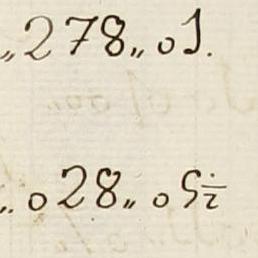 „278„ 01.
„028„ 05½